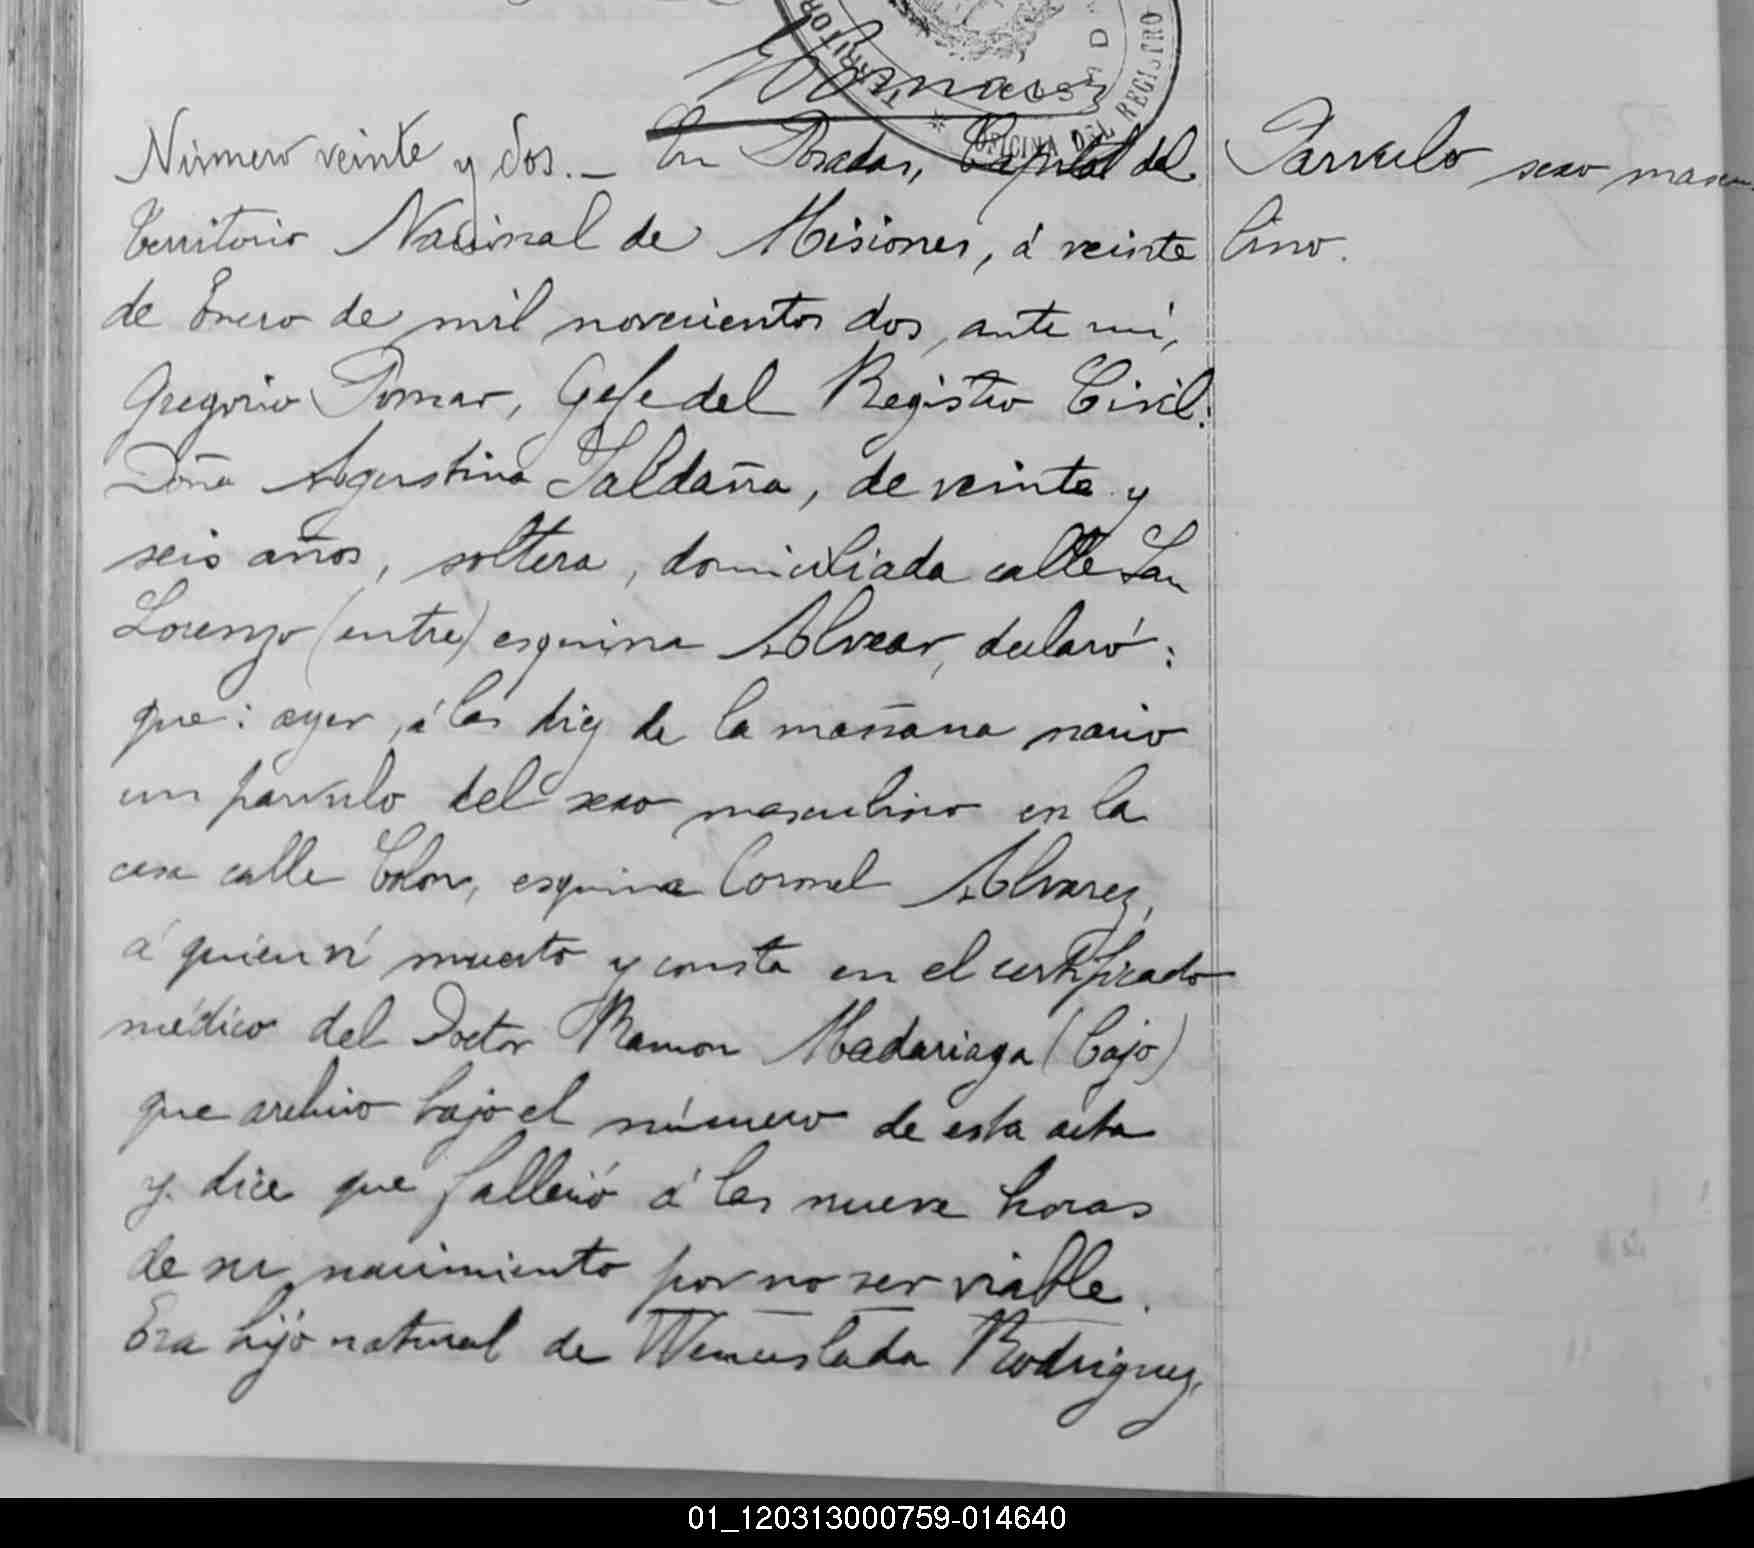 TERRITOR
OFICINA DEL REGISTRO
Número veinte y dos. _ En Posadas, Capital del
Parvulo sexo mascu
Territorio Nacional de Misiones, á veinte
lino.
de Enero de mil novecientos dos, ante mi,
Gregorio Pomar, Gefe del Registro Civil:
Doña Agustina Saldaña, de veinte y
seis años, soltera, domiciliada calle San
Lorenzo (entre) esquina Alvear, declaró:
que: ayer, á las diez de la mañana nació
un parvulo del sexo masculino en la
casa calle Colon, esquina Coronel Alvarez,
á quien ví muerto y consta en el certificado
médico del Doctor Ramon Madariaga (Cajo)
que archivo bajo el número de esta acta
y dice que falleció á las nueve horas
de su nacimiento por no ser viable.
Era hijo natural de Wenceslada Rodriguez,
01_120313000759-014640